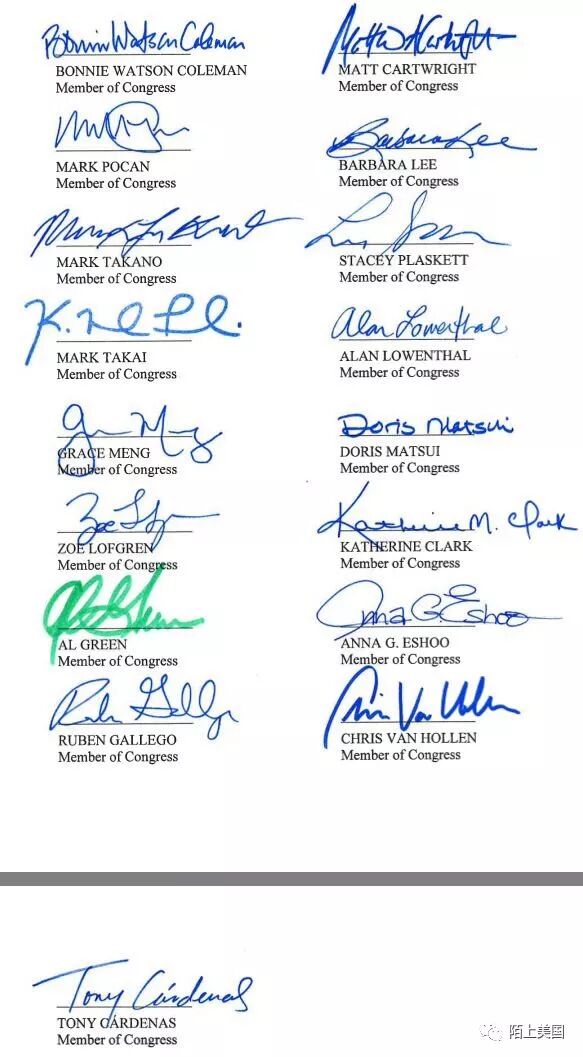 Bonnie Watson Coleman
BONNIE WATSON COLEMAN
Member of Congress
Matt Cartwright
MATT CARTWRIGHT
Member of Congress
MARK POCAN
Member of Congress
Barbara Lee
BARBARA LEE
Member of Congress
MARK TAKANO
Member of Congress
STACEY PLASKETT
Member of Congress
MARK TAKAI
Member of Congress
Alan Lowenthal
ALAN LOWENTHAL
Member of Congress
GRACE MENG
Member of Congress
Doris Matsui
DORIS MATSUI
Member of Congress
ZOE LOFGREN
Member of Congress
Katherine M. Clark
KATHERINE CLARK
Member of Congress
Al Green
AL GREEN
Member of Congress
Anna G. Eshoo
ANNA G. ESHOO
Member of Congress
RUBEN GALLEGO
Member of Congress
Chris Van Hollen
CHRIS VAN HOLLEN
Member of Congress
Tony Cárdenas
TONY CÁRDENAS
Member of Congress
陌上美国